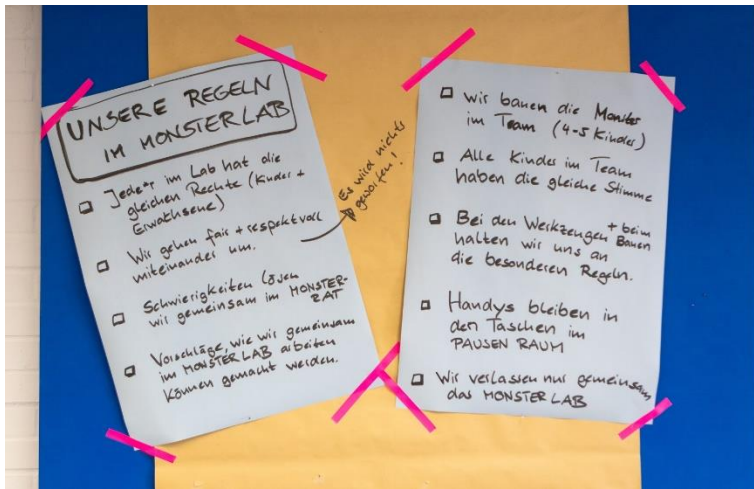 UNSERE REGELN
IM MONSTERLAB
Jede*r im Lab hat die
gleichen Rechte (Kinder +
Erwachsene)
Wir gehen fair + respektvoll
miteinander um.
Es wird nichts
geworfen!
Schwierigkeiten lösen
wir gemeinsam im MONSTER-
RAT
Vorschläge, wie wir gemeinsam
im MONSTERLAB arbeiten
können gemacht werden.
Wir bauen die Monster
im Team (4-5 Kinder)
Alle Kinder im Team
haben die gleiche Stimme
Bei den Werkzeugen + beim Bauen
halten wir uns an
die besonderen Regeln.
Handys bleiben in
den Taschen im
PAUSEN RAUM
Wir verlassen nur gemeinsam
das MONSTERLAB